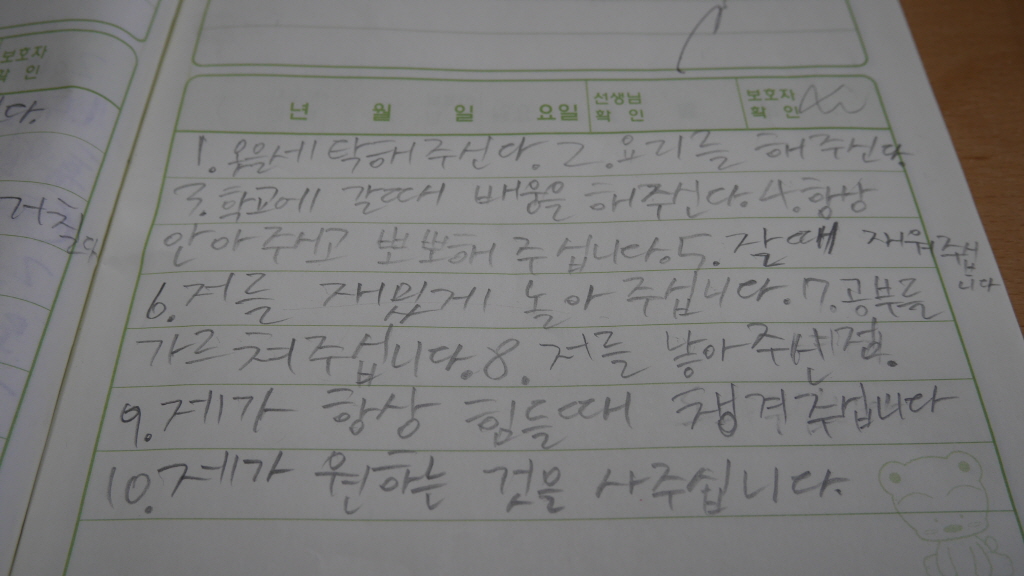 보호자
확 인
다.
년 월 일 요일 선생님 확 인 보호자 확 인
1. 옷을세탁해주신다. 2. 요리를 해주신다
3. 학교에 갈때 배웅을 해주신다. 4. 항상
안아주시고 뽀뽀해주십니다. 5. 잘때 재워주십니다
6. 저를 재밌게 놀아주십니다. 7. 공부를
가르쳐주십니다. 8. 저를 낳아주신점.
9. 제가 항상 힘들때 챙겨주십니다
10. 제가 원하는 것을 사주십니다.